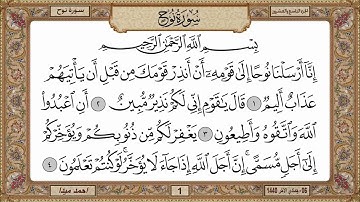 الجزء التاسع والعشرون
سُورَةُ نُوحٍ
سورة نوح
بِسْمِ اللَّهِ الرَّحْمَٰنِ الرَّحِيمِ
إِنَّا أَرْسَلْنَا نُوحًا إِلَىٰ قَوْمِهِ أَنْ أَنذِرْ قَوْمَكَ مِن قَبْلِ أَن يَأْتِيَهُمْ
عَذَابٌ أَلِيمٌ ١ قَالَ يَٰقَوْمِ إِنِّي لَكُمْ نَذِيرٌ مُّبِينٌ ٢ أَنِ اعْبُدُوا
اللَّهَ وَاتَّقُوهُ وَأَطِيعُونِ ٣ يَغْفِرْ لَكُم مِّن ذُنُوبِكُمْ وَيُؤَخِّرْكُمْ
إِلَىٰ أَجَلٍ مُّسَمًّى إِنَّ أَجَلَ اللَّهِ إِذَا جَاءَ لَا يُؤَخَّرُ لَوْ كُنتُمْ تَعْلَمُونَ ٤
1440
1